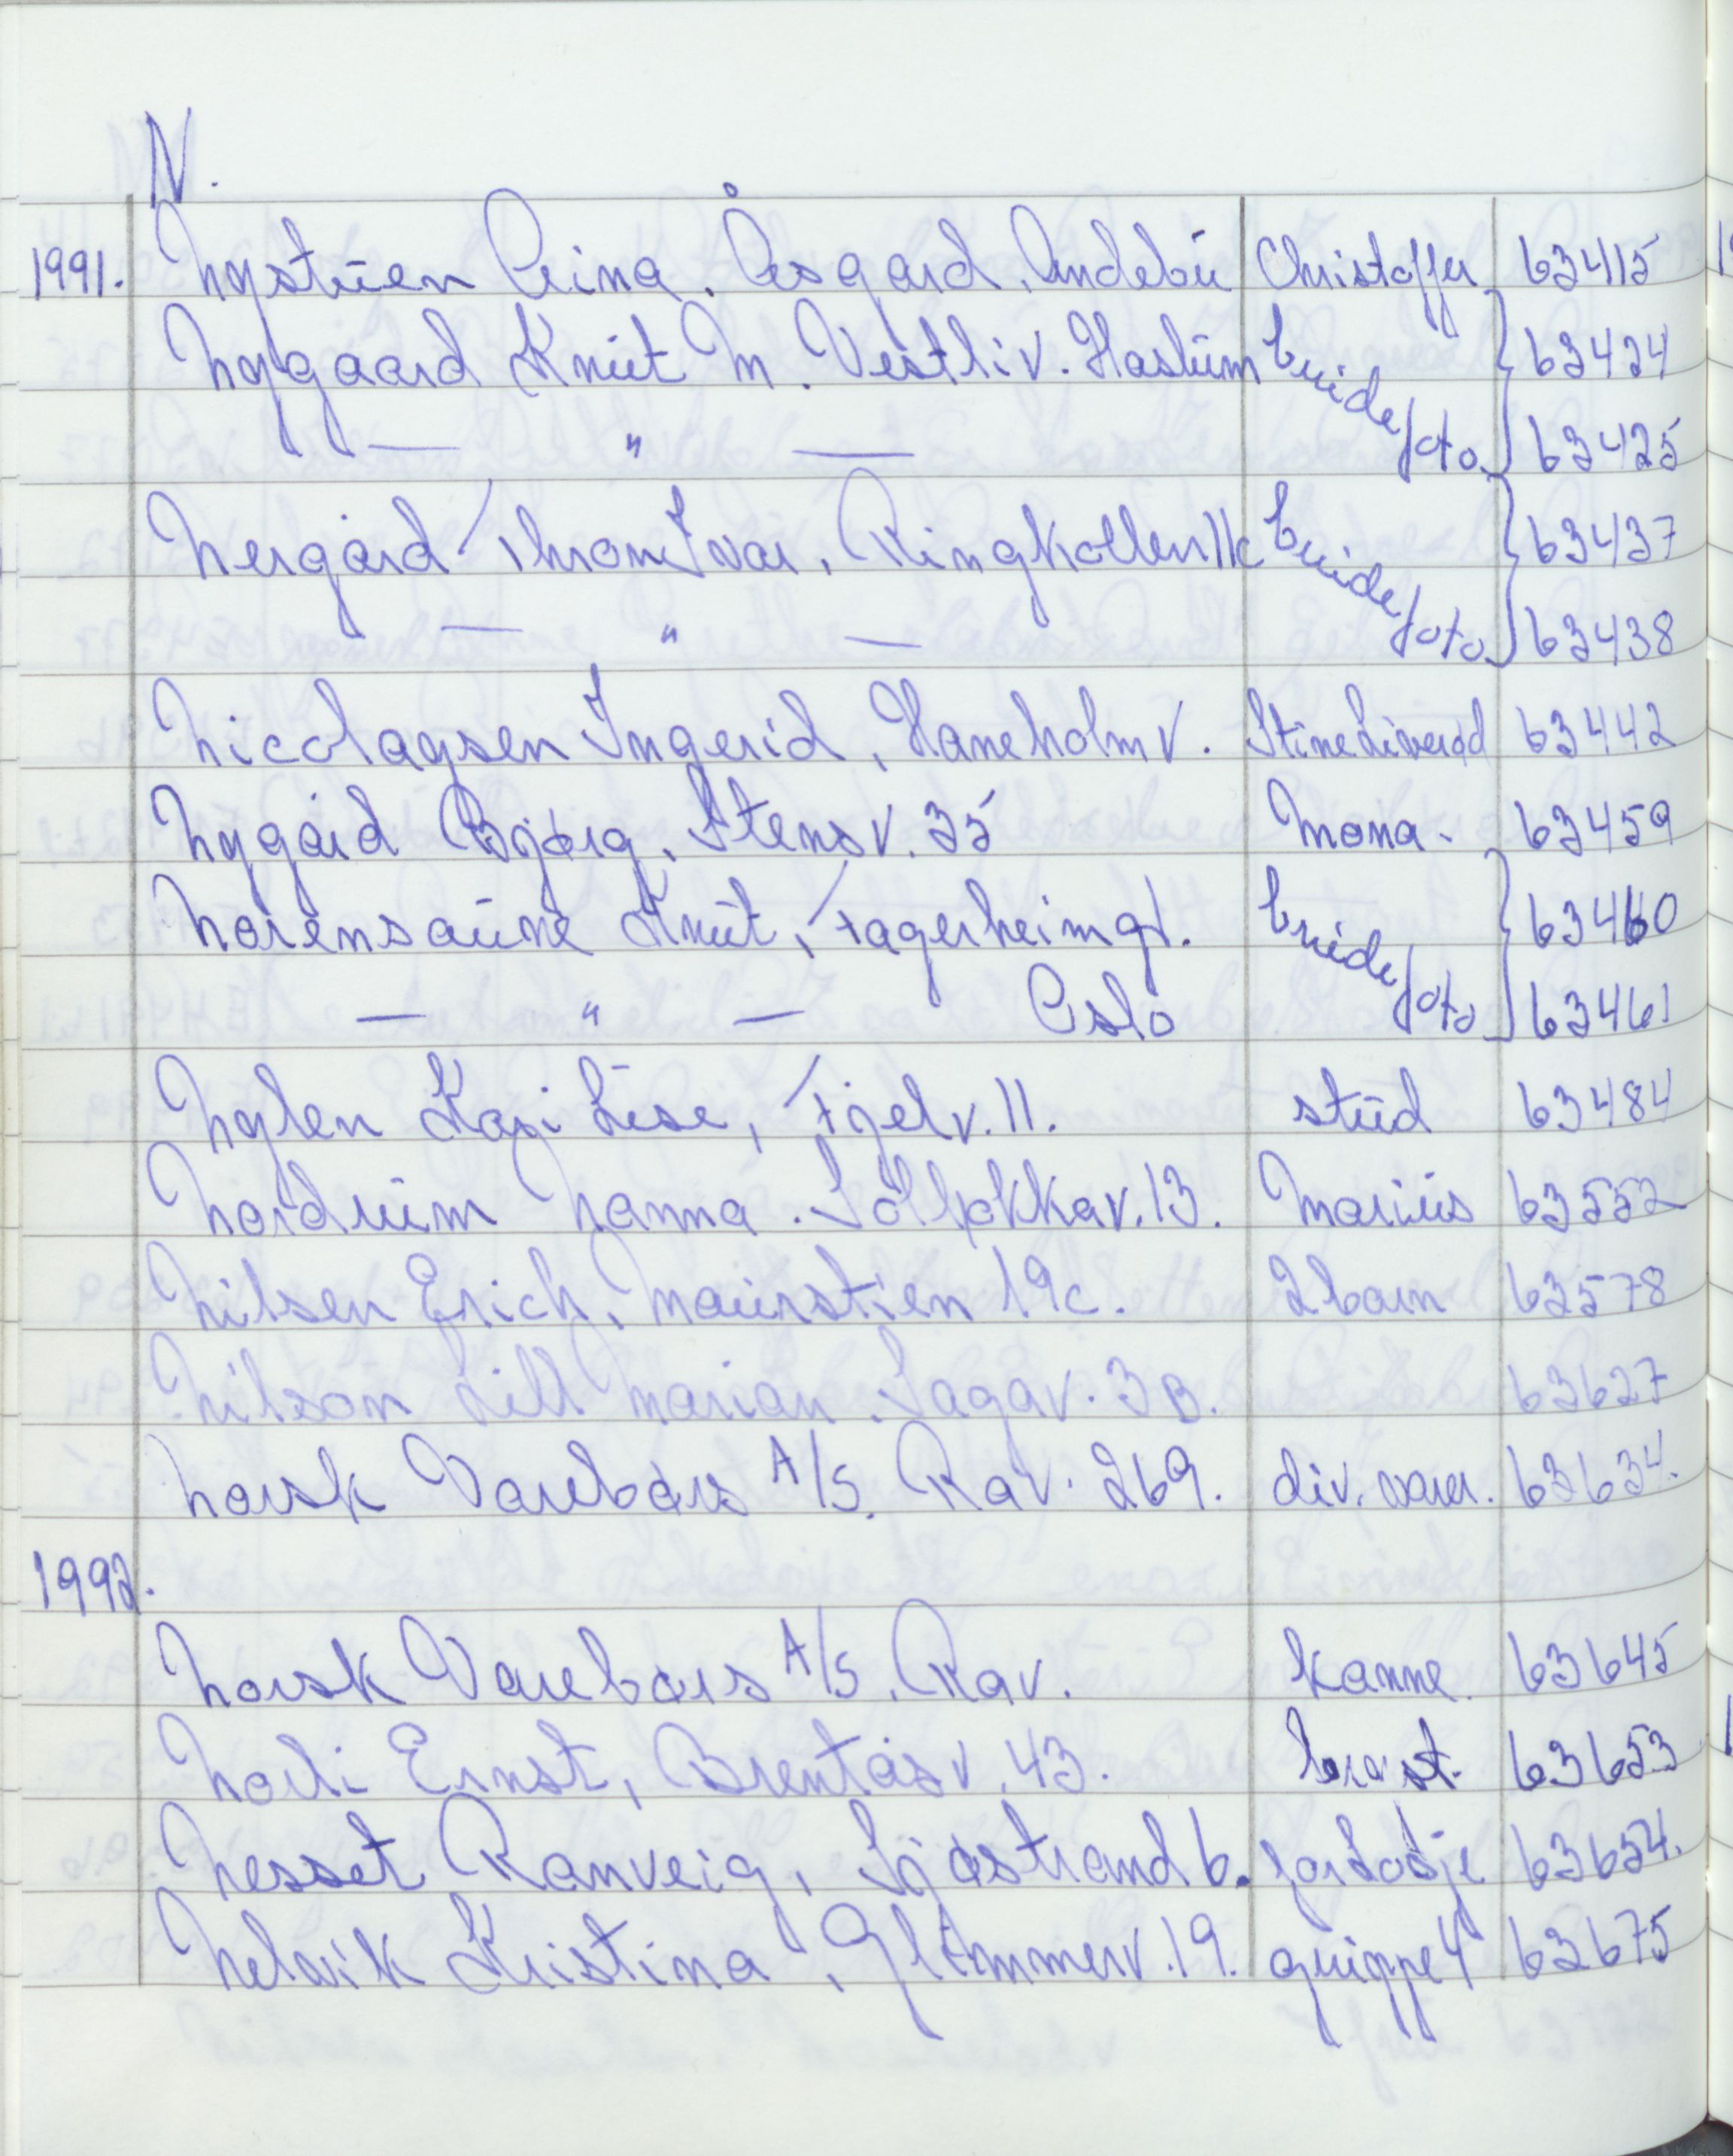 N.
1991. Nystuen Eina. Åsgard, Andebu Christoffer 63415
Nygaard Knut M. Vestliv. Haslum brude 63424
— " — foto 63425
Nergård Thrond Ivar, Ringkollen 11c brude 63437
— " — foto 63438
Nicolaysen Ingerid, Haneholmv. Stine Liverød 63442
Nygård Bjørg, Stensv. 35 Mona. 63459
Norensaune Knut, Fagerheimgt. brude 63460
— " — Oslo foto 63461
Nylen Kari Lise, Fjelv. 11. stud 63484
Nordrum Nanna. Solløkkav. 13. Marius 63552
Nilsen Erich, Maurstien 19c. 2 barn 63578
Nilson Lill Marian. Sagav. 3B. 63627
Norsk Varebørs A/S. Rav. 269. div. varer. 63634.
1992.
Norsk Varebørs A/S. Rav. kanne. 63645
Norli Ernst, Brentåsv. 43. bryst. 63653
Nesset Ranveig, Sjøstrand 6. 63654.
Nelvik Kristina, Glimmerv. 19. gruppe 4 63675